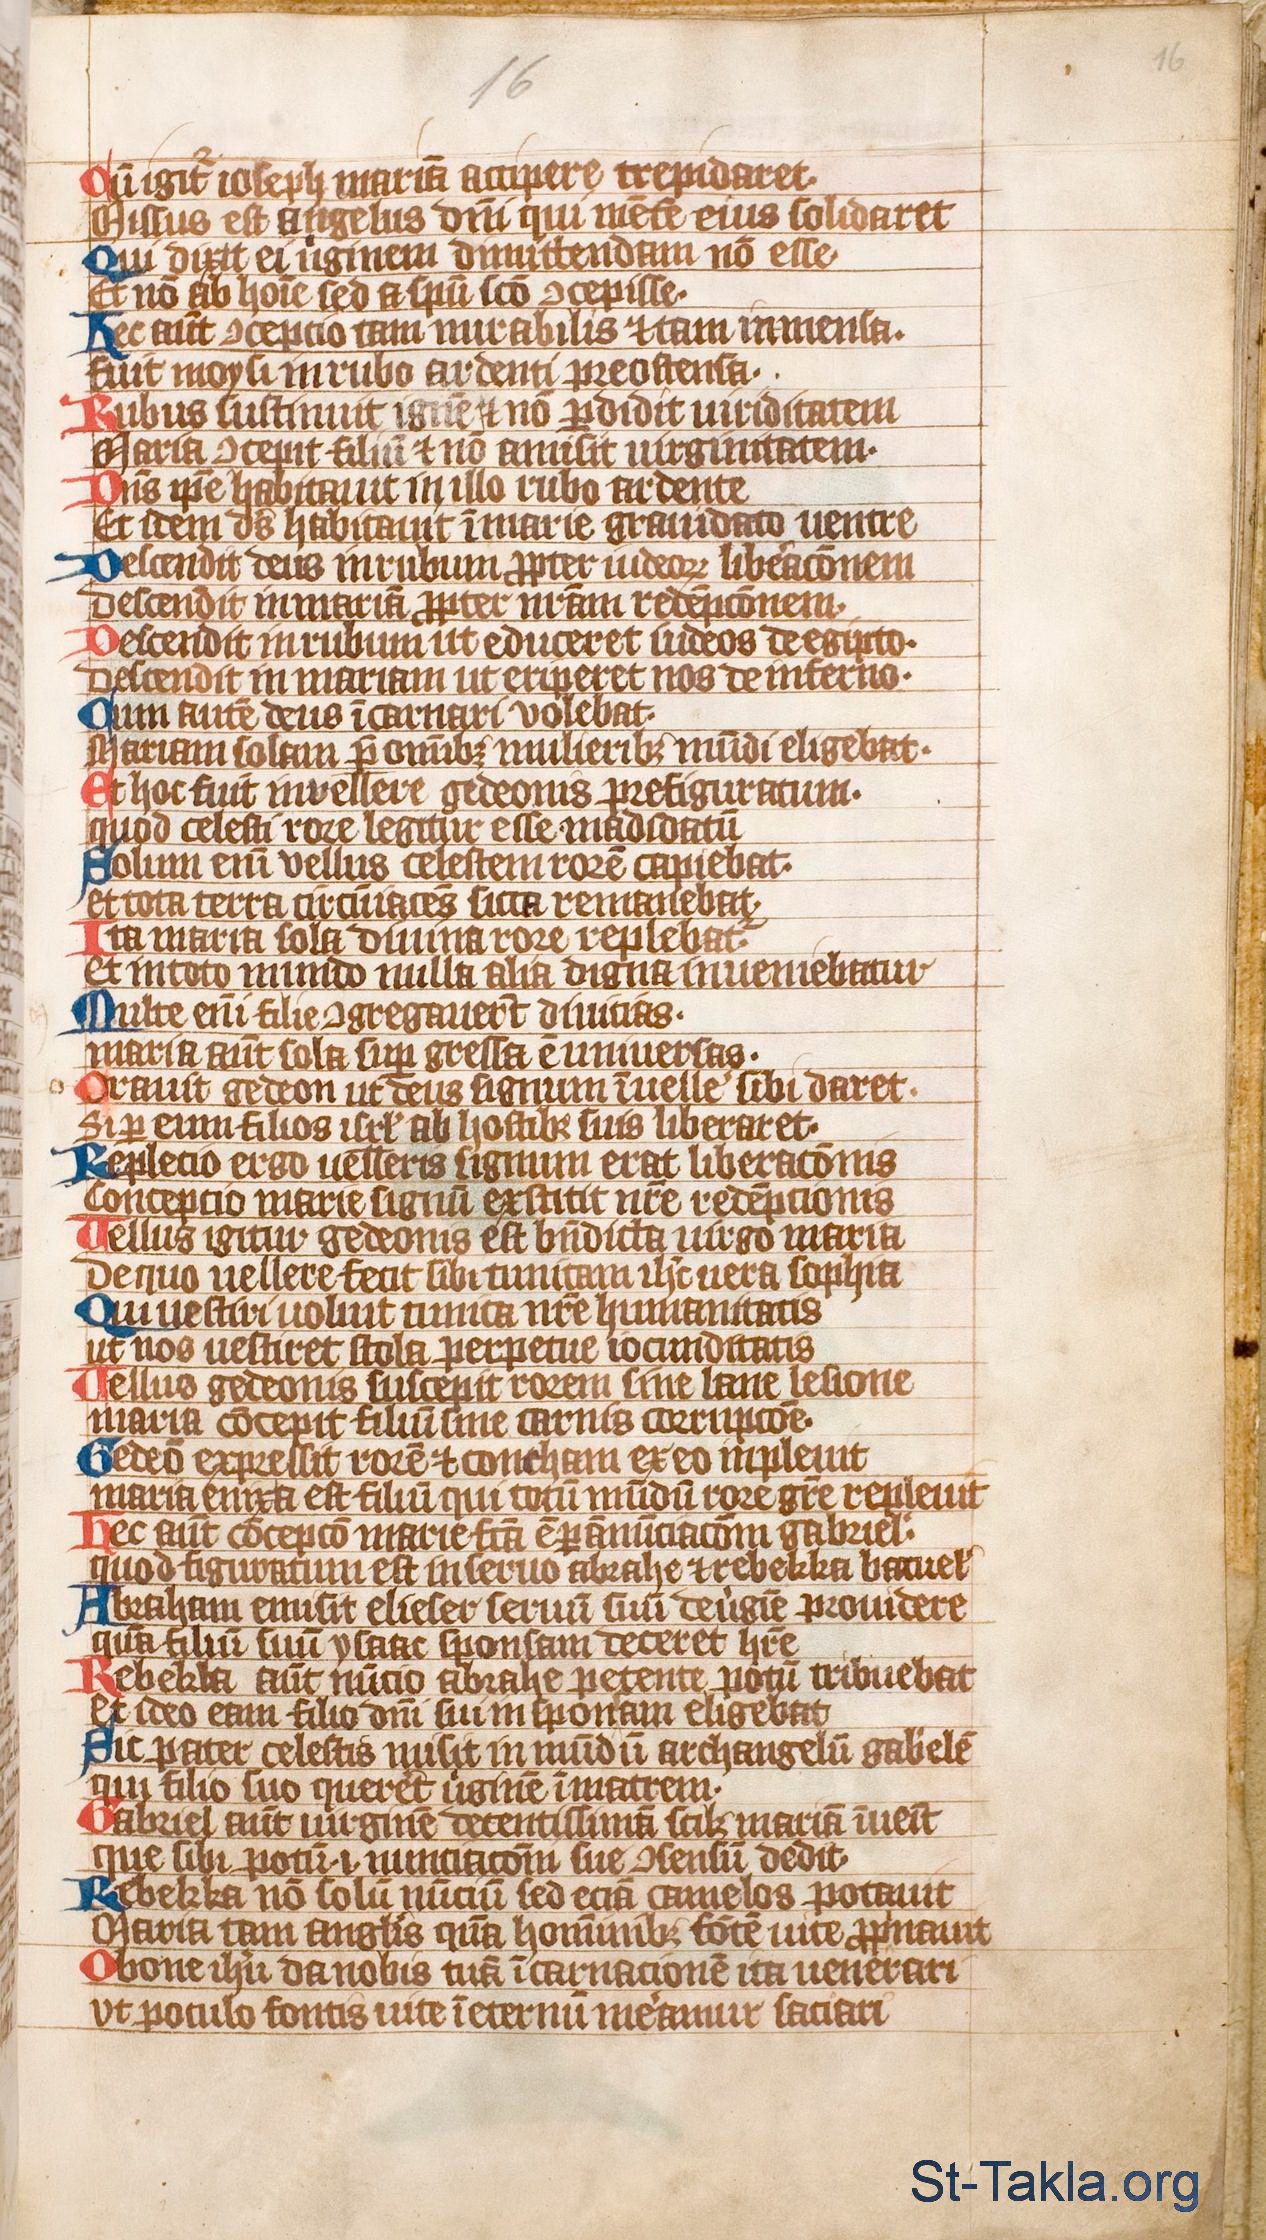 16
16
Cū igit᷑ ioseph mariā accipere trepidaret.
Missus est angelus dn̄i qui mētē eius solidaret
Qui dixit ei ūginem dimittendam nō esse.
Et nō ab hoīe sed a spū scō ꝯcepisse.
Hec aūt ꝯcepcio tam mirabilis ⁊ tam inmensa.
fuit moysi in rubo ardenti preostensa.
Rubus sustinuit ignē ⁊ nō ꝑdidit uiriditatem
Maria ꝯcepit filiū ⁊ nō amisit uirginitatem.
Dn̄s ip̄e habitauit in illo rubo ardente
Et idem ds̄ habitauit ī marie grauidato uentre
Descendit deus in rubum ꝓpter iudeoꝝ liberacōnem
Descendit in mariā ꝓpter nrām redēpcōnem.
Descendit in rubum ut educeret iudeos de egipto.
Descendit in mariam ut eriperet nos de inferno.
Cum autē deus īcarnari volebat.
Mariam solam p̄ omībꝫ mulieribꝫ mūdi eligebat.
Et hoc fuit in vellere gedeonis prefiguratum.
quod celesti rore legitur esse madidatū
Solum enī vellus celestem rorē capiebat.
et tota terra circūiacēs sicca remanebat.
Ita maria sola diuina rore replebat᷑.
et in toto mundo nulla alia digna inueniebatur
Multe enī filie ꝯgregauer̄t diuicias.
maria aūt sola suꝑ gressa ē uniuersas.
Orauit gedeon ut deus signum ī uelle᷑ sibi daret.
Si ꝑ eum filios isrl̄ ab hostibꝫ suis liberaret.
Replecio ergo uelleris signum erat liberacōnis
Concepcio marie signū exstitit nr̄e redēpcionis
Vellus igitur gedeonis est bn̄dicta uirgo maria
De quo uellere fecit sibi tunicam ih̄c uera sophia
Qui uestiri uoluit tunica nr̄e humanitatis
ut nos uestiret stola perpetue iocunditatis
Vellus gedeonis suscepit rorem sine lane lesione
maria cōcepit filiū sine carnis corrupcōe.
Gedeō expressit rorē ⁊ concham ex eo inpleuit
maria enixa est filiū qui totū mūdū rore gr̄e repleuit
Hec aūt cōcepcō marie fcā ē ꝑ ānūciacōm gabriel᷑.
quod figuratum est in seruo abrahe ⁊ rebekka batuel᷑
Abraham emisit elieser seruū suū de ūgīe prouidere
quā filiū suū ysaac sponsam deceret hr̄e
Rebekka aūt nūcio abrahe petente potū tribuebat
et ideo eam filio dn̄i sui in sponsam eligebat
Sic pater celestis misit in mūdū archangelū gab᷑elē
qui filio suo quer̄et ūginē ī matrem.
Gabriel aūt uirginē decentissimā scilꝫ mariā īuēit
que sibi potū .i. nunciacōm sue ꝯsensū dedit
Rebekka nō solū nūciū sed eciā camelos potauit
Maria tam angl̄is quā hominibꝫ fōtē uite ꝓpinauit
O bone ih̄u da nobis tuā īcarnacionē ita uenerari
vt potulo fontis uite ī eternū me᷑amur saciari
St-Takla.org